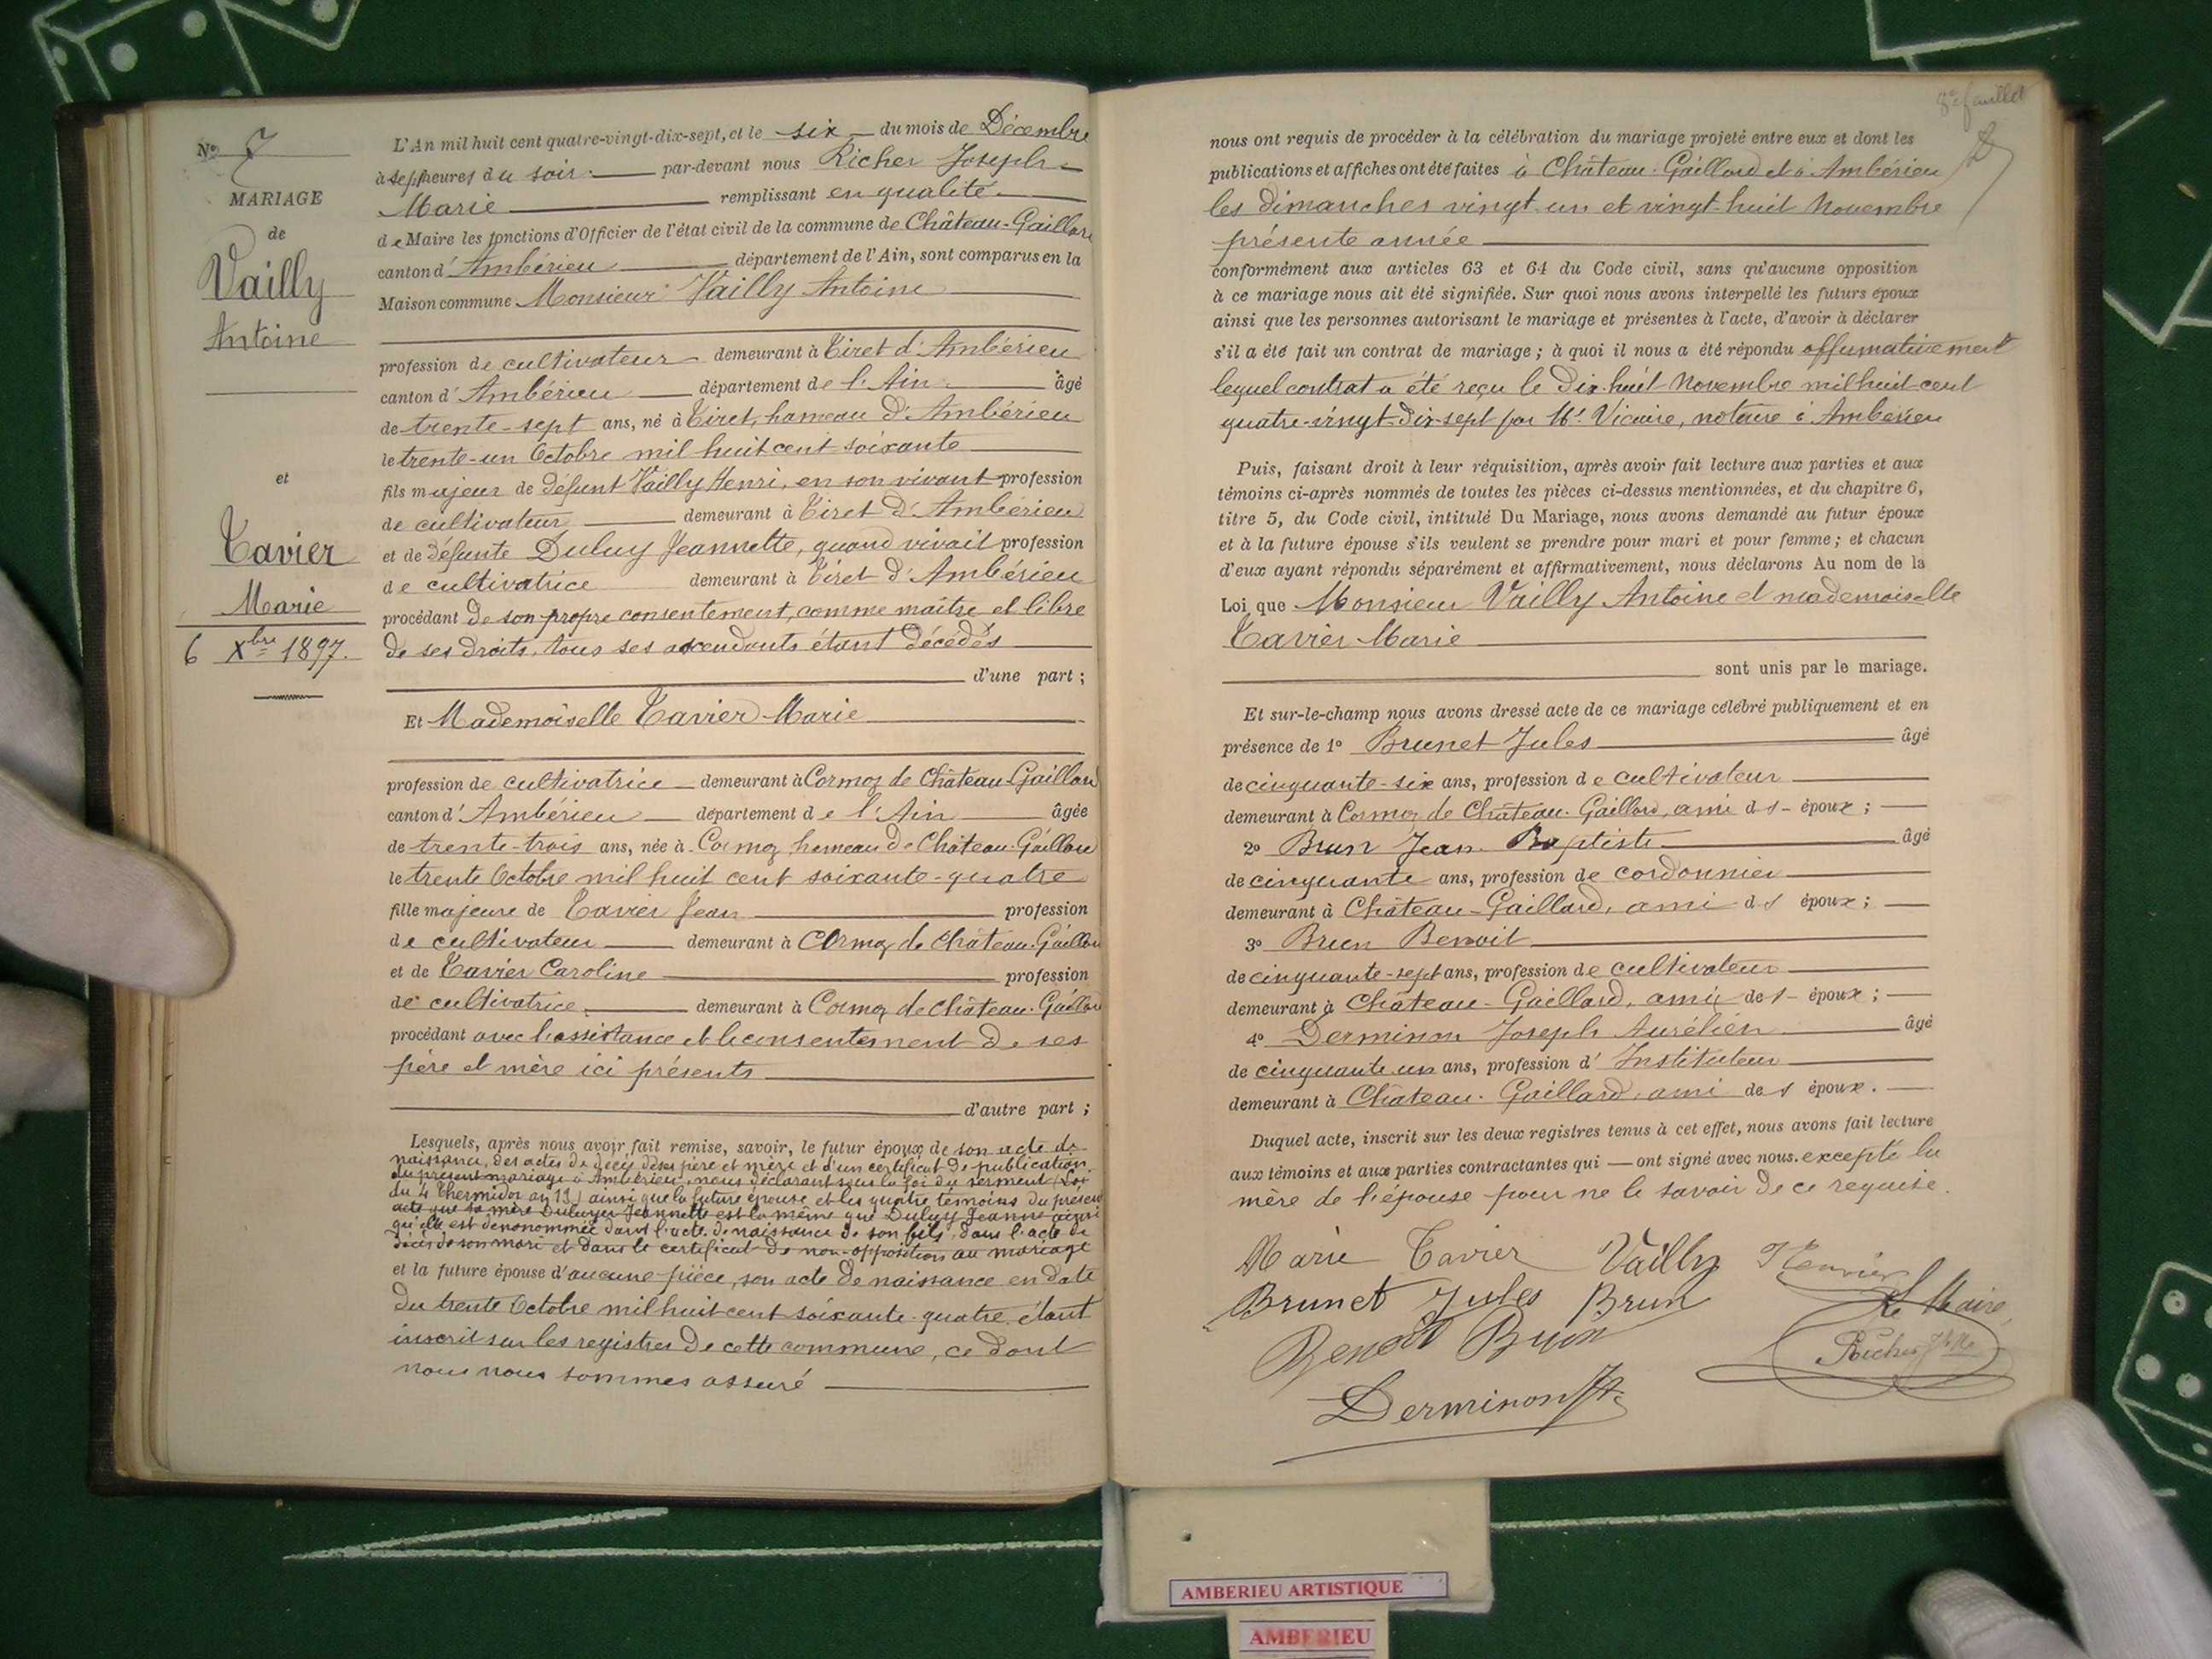 N° 7
MARIAGE
de
Vailly
Antoine
et
Tavier
Marie
6 Xbre 1897.
L'An mil huit cent quatre-vingt-dix-sept, et le six du mois de Décembre
à sept heures du soir par-devant nous Richer Joseph
Marie remplissant en qualité
de Maire les fonctions d'Officier de l'état civil de la commune de Château-Gaillard
canton d'Ambérieu département de l'Ain, sont comparus en la
Maison commune Monsieur Vailly Antoine
profession de cultivateur demeurant à Tiret d'Ambérieu
canton d'Ambérieu département de l'Ain âgé
de trente-sept ans, né à Tiret, hameau d'Ambérieu
le trente-un Octobre mil huit cent soixante
fils majeur de défunt Vailly Henri, en son vivant profession
de cultivateur demeurant à Tiret d'Ambérieu
et de défunte Duluy Jeannette, quand vivait profession
de cultivatrice demeurant à Tiret d'Ambérieu
procédant de son propre consentement, comme maître et libre
de ses droits, tous ses ascendants étant décédés
d'une part ;
Et Mademoiselle Tavier Marie
profession de cultivatrice demeurant à Cormoz de Château-Gaillard
canton d'Ambérieu département de l'Ain âgée
de trente-trois ans, née à Cormoz hameau de Château-Gaillard
le trente Octobre mil huit cent soixante-quatre
fille majeure de Tavier Jean profession
de cultivateur demeurant à Cormoz de Château-Gaillard
et de Tavier Caroline profession
de cultivatrice demeurant à Cormoz de Château-Gaillard
procédant avec l'assistance et le consentement de ses
père et mère ici présents
d'autre part ;
Lesquels, après nous avoir fait remise, savoir, le futur époux de son acte de
naissance, des actes de décès de ses père et mère et d'un certificat de publication
du présent mariage à Ambérieu, nous déclarant sous la foi du serment (Loi
du 4 Thermidor an 13) ainsi que la future épouse et les quatre témoins du présent
acte que sa mère Duluyer Jeannette est la même que Duluy Jeanne ainsi
qu'elle est dénonommée dans l'acte de naissance de son fils, dans l'acte de
décès de son mari et dans le certificat de non-opposition au mariage
et la future épouse d'aucune pièce, son acte de naissance en date
du trente Octobre mil huit cent soixante-quatre étant
inscrit sur les registres de cette commune, ce dont
nous nous sommes assuré
8e feuillet
nous ont requis de procéder à la célébration du mariage projeté entre eux et dont les
publications et affiches ont été faites à Château-Gaillard et à Ambérieu
les dimanches vingt-un et vingt-huit Novembre
présente année
conformément aux articles 63 et 64 du Code civil, sans qu'aucune opposition
à ce mariage nous ait été signifiée. Sur quoi nous avons interpellé les futurs époux
ainsi que les personnes autorisant le mariage et présentes à l'acte, d'avoir à déclarer
s'il a été fait un contrat de mariage ; à quoi il nous a été répondu affirmativement
lequel contrat a été reçu le Dix-huit Novembre mil huit cent
quatre-vingt-dix-sept par Me Vicaire, notaire à Ambérieu
Puis, faisant droit à leur réquisition, après avoir fait lecture aux parties et aux
témoins ci-après nommés de toutes les pièces ci-dessus mentionnées, et du chapitre 6,
titre 5, du Code civil, intitulé Du Mariage, nous avons demandé au futur époux
et à la future épouse s'ils veulent se prendre pour mari et pour femme ; et chacun
d'eux ayant répondu séparément et affirmativement, nous déclarons Au nom de la
Loi que Monsieur Vailly Antoine et mademoiselle
Tavier Marie
sont unis par le mariage.
Et sur-le-champ nous avons dressé acte de ce mariage célébré publiquement et en
présence de 1° Brunet Jules âgé
de cinquante-six ans, profession de cultivateur
demeurant à Cormoz de Château-Gaillard, ami des époux ;
2° Brun Jean Baptiste âgé
de cinquante ans, profession de cordonnier
demeurant à Château-Gaillard, ami des époux ;
3° Brun Benoit
de cinquante-sept ans, profession de cultivateur
demeurant à Château-Gaillard, ami des époux ;
4° Derminon Joseph Aurélien âgé
de cinquante un ans, profession d'Instituteur
demeurant à Château-Gaillard, ami des époux.
Duquel acte, inscrit sur les deux registres tenus à cet effet, nous avons fait lecture
aux témoins et aux parties contractantes qui ont signé avec nous. excepté la
mère de l'épouse pour ne le savoir de ce requise.
Marie Tavier Vailly
Brunet Jules Brun Le Maire,
Benoit Brun Richer
Derminon
AMBERIEU ARTISTIQUE
AMBERIEU